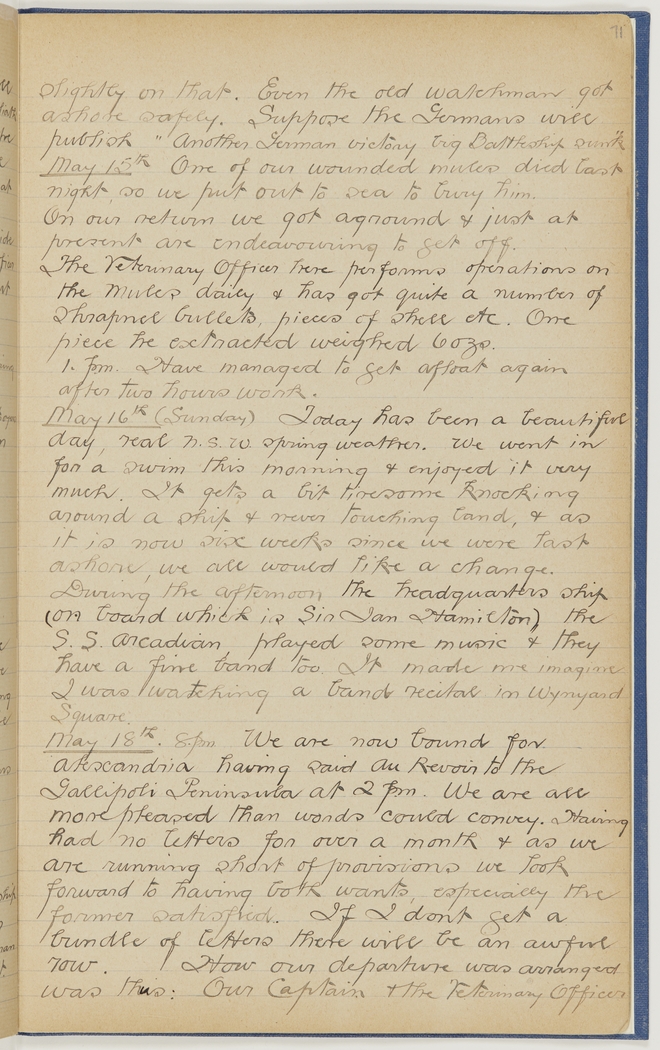 71
slightly on that. Even the old watchman got
ashore safely. Suppose the Germans will
publish "Another German victory big Battleship sunk
May 15th One of our wounded mules died last
night, so we put out to sea to bury him.
On our return we got aground & just at
present are endeavouring to get off.
The Veterinary Officer here performs operations on
the mules daily & has got quite a number of
Shrapnel bullets, pieces of shell etc. One
piece he extracted weighed 6ozs.
1. pm. Have managed to get afloat again
after two hours work.
May 16th (Sunday) Today has been a beautiful
day, real N.S.W. spring weather. We went in
for a swim this morning & enjoyed it very
much. It gets a bit tiresome knocking
around a ship & never touching land, & as
it is now six weeks since we were last
ashore, we all would like a change.
During the afternoon the headquarters ship
(on board which is Sir Ian Hamilton) the
S.S. Arcadian, played some music & they
have a fine band too. It made me imagine
I was watching a band recital in Wynyard
Square.
May 18th. 8pm We are now bound for
Alexandria having said Au Revoir to the
Gallipoli Peninsula at 2 pm. We are all
more pleased than words could convey. Having
had no letters for over a month & as we
are running short of provisions we look
forward to having both wants, especially the
former satisfied. If I dont get a
bundle of letters there will be an awful
row. How our departure was arranged
was thus: Our Captain & the Veterinary Officer